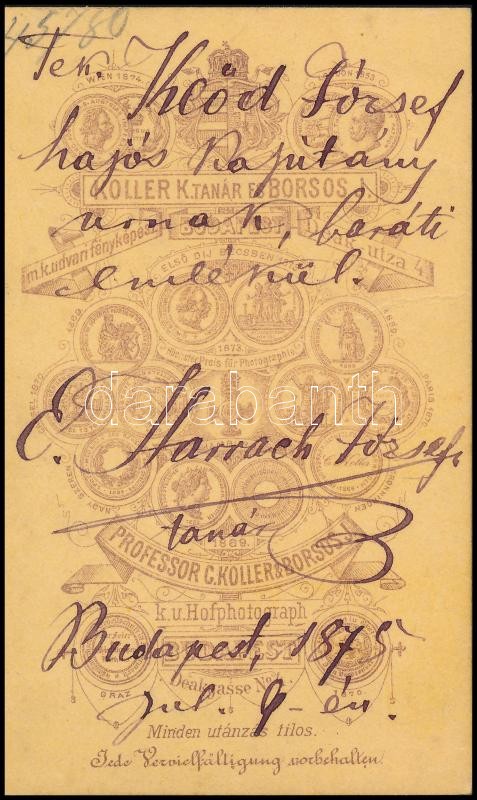 45780
Tek. Kleód József
WIEN 1874.
1853
hajós kapitány
KOLLER K. TANÁR ÉS BORSOS J.
urnak, baráti
m.k. udvari fényképész BUDAPEST Deák utza 4
emlékül.
ELSŐ DIJ BÉCSBEN
1873.
Höchster Preis für Photographie
PARIS
darabanth
E. Harrach József
tanár
1869.
PROFESSOR C. KOLLER & BORSOS J.
k.u. Hofphotograph
Budapest, 1875
Deakgasse No 4.
GRAZ
1870
jul. 9-én.
Minden utánzás tilos.
Jede Vervielfältigung vorbehalten.